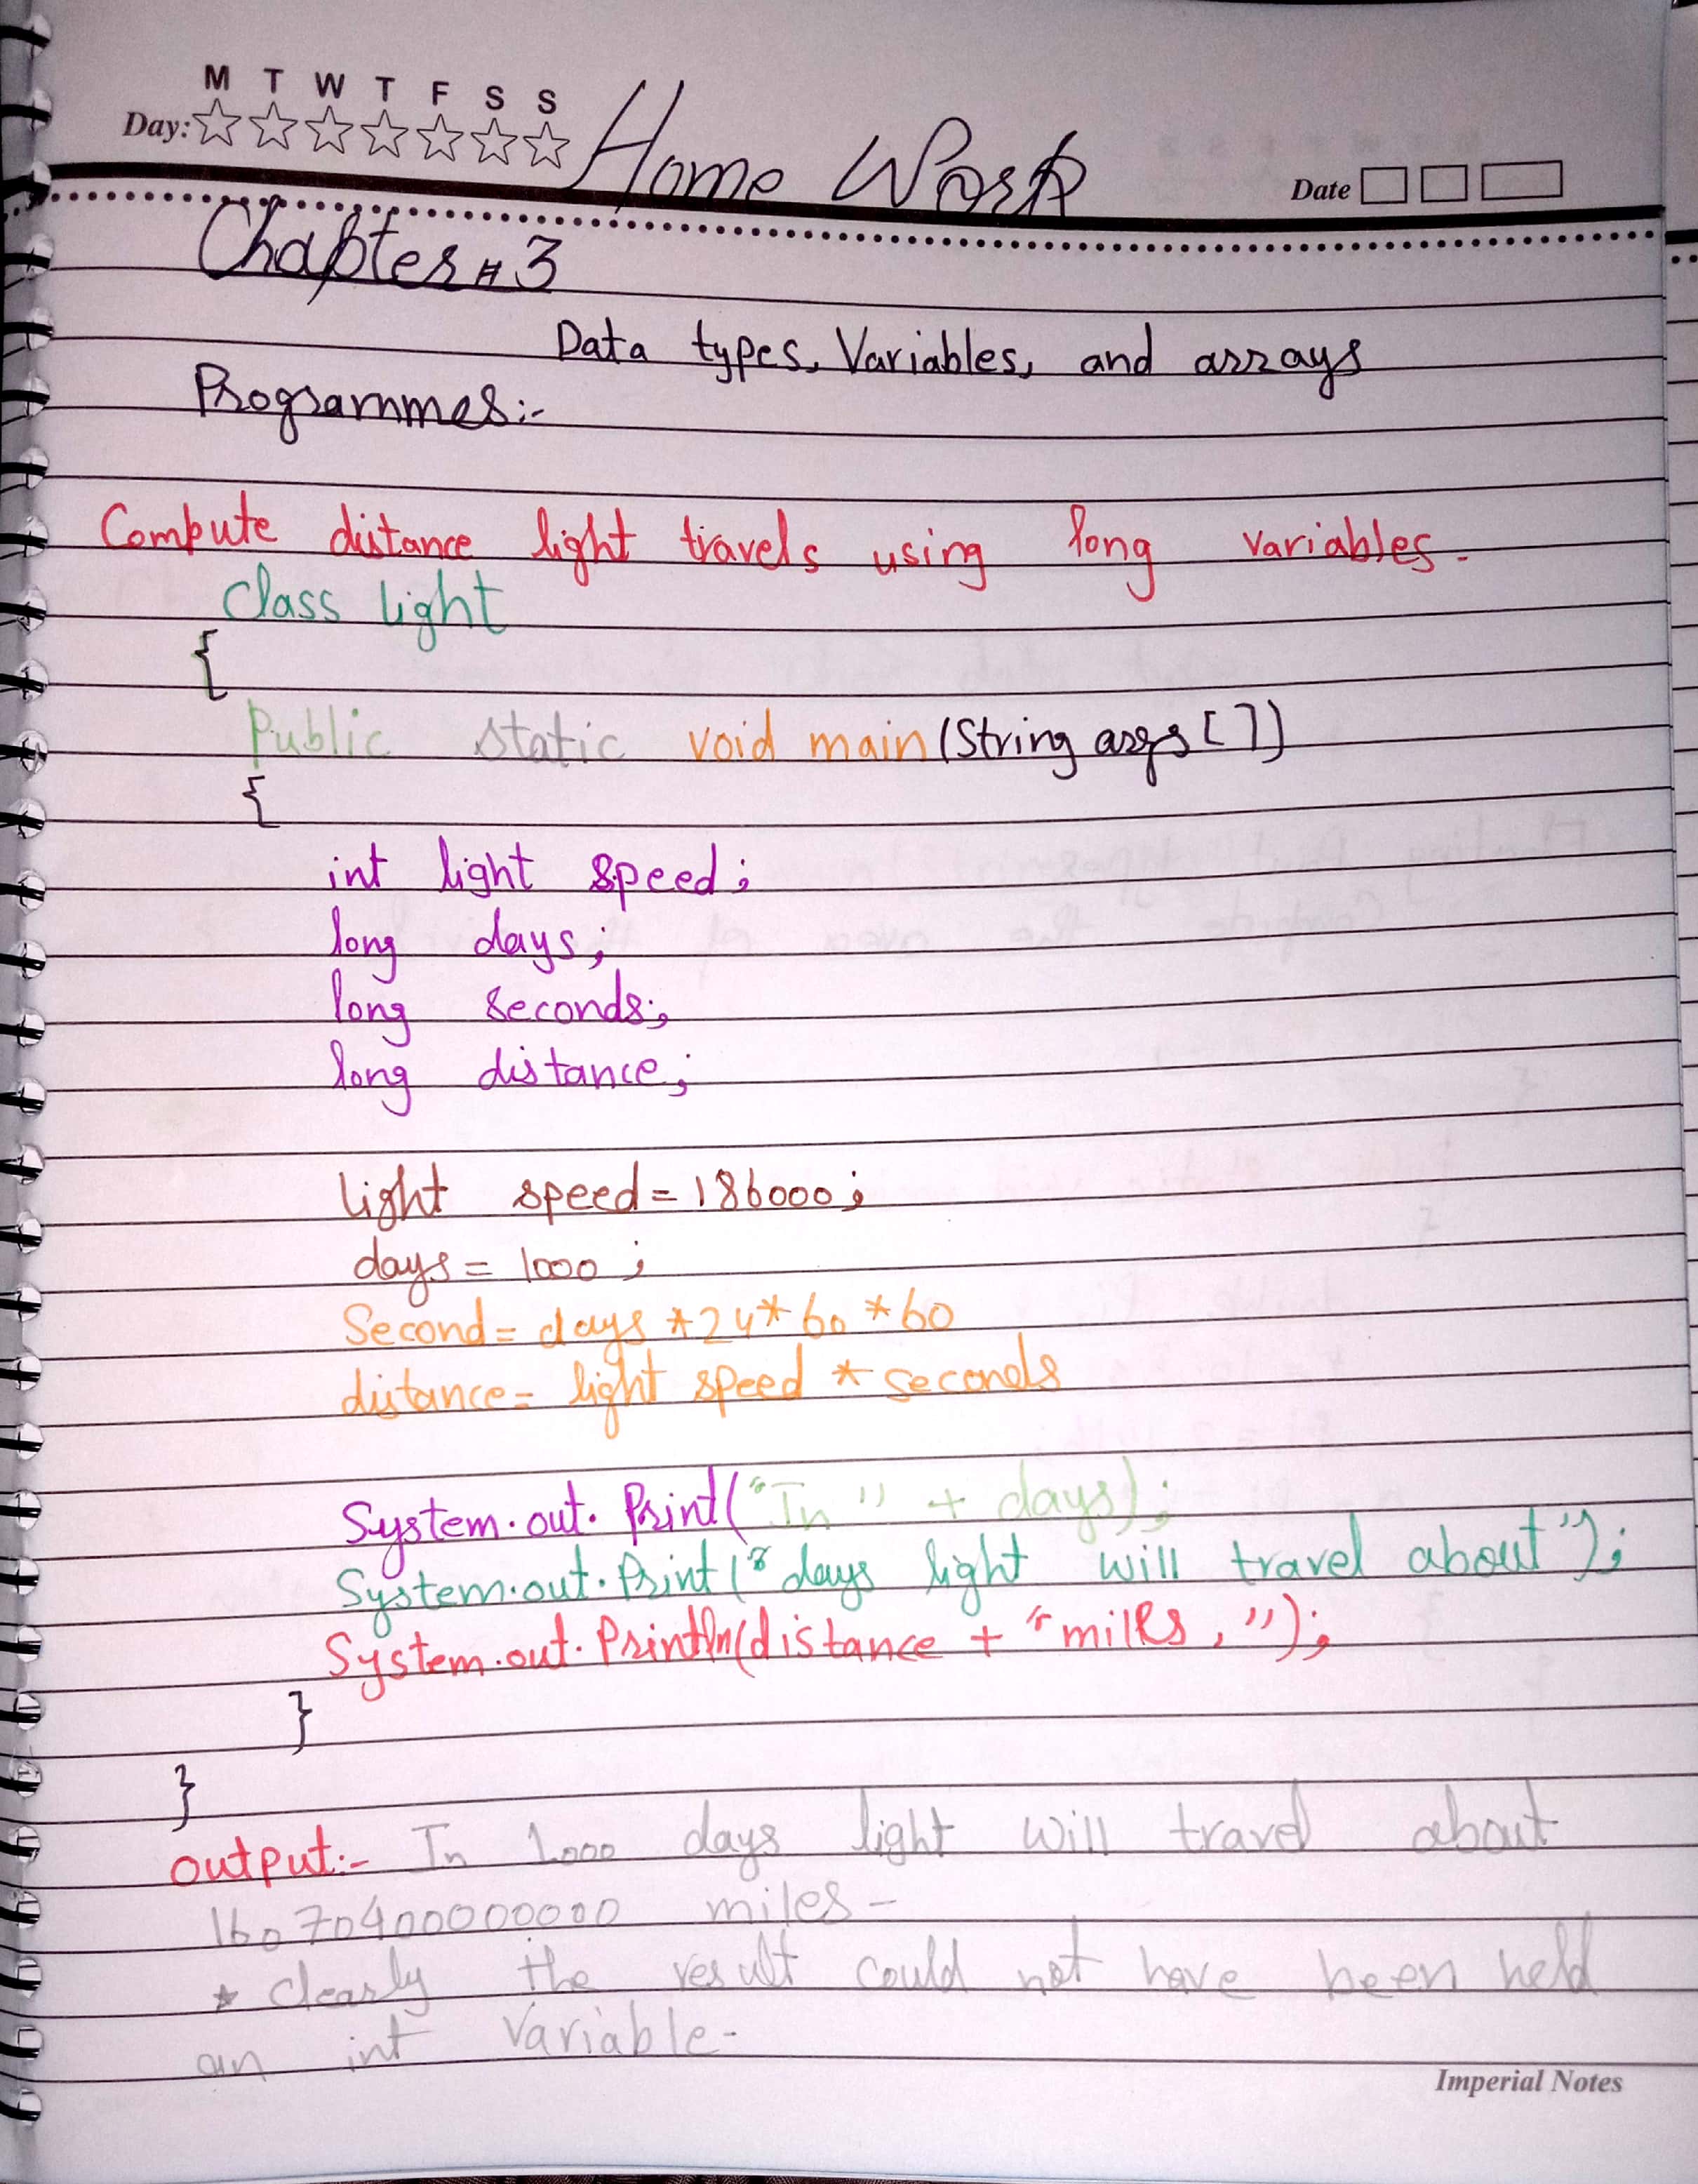 M T W T F S S
Day:
Home Work
Date
Chapter # 3
Data types, Variables, and arrays
Programmes:-
Compute distance light travels using long variables.
Class light
{
Public static void main (String args [ ])
{
int light speed;
long days;
long seconds;
long distance;
light speed = 186000;
days = 1000 ;
Second = days *24* 60 *60
distance = light speed * seconds
System.out.Print("In" + days);
System.out.Print("days light will travel about");
System.out.Println(distance + "miles , ");
}
}
output:- In 1000 days light will travel about
16070400000000 miles -
* clearly the result could not have been held
an int variable -
Imperial Notes